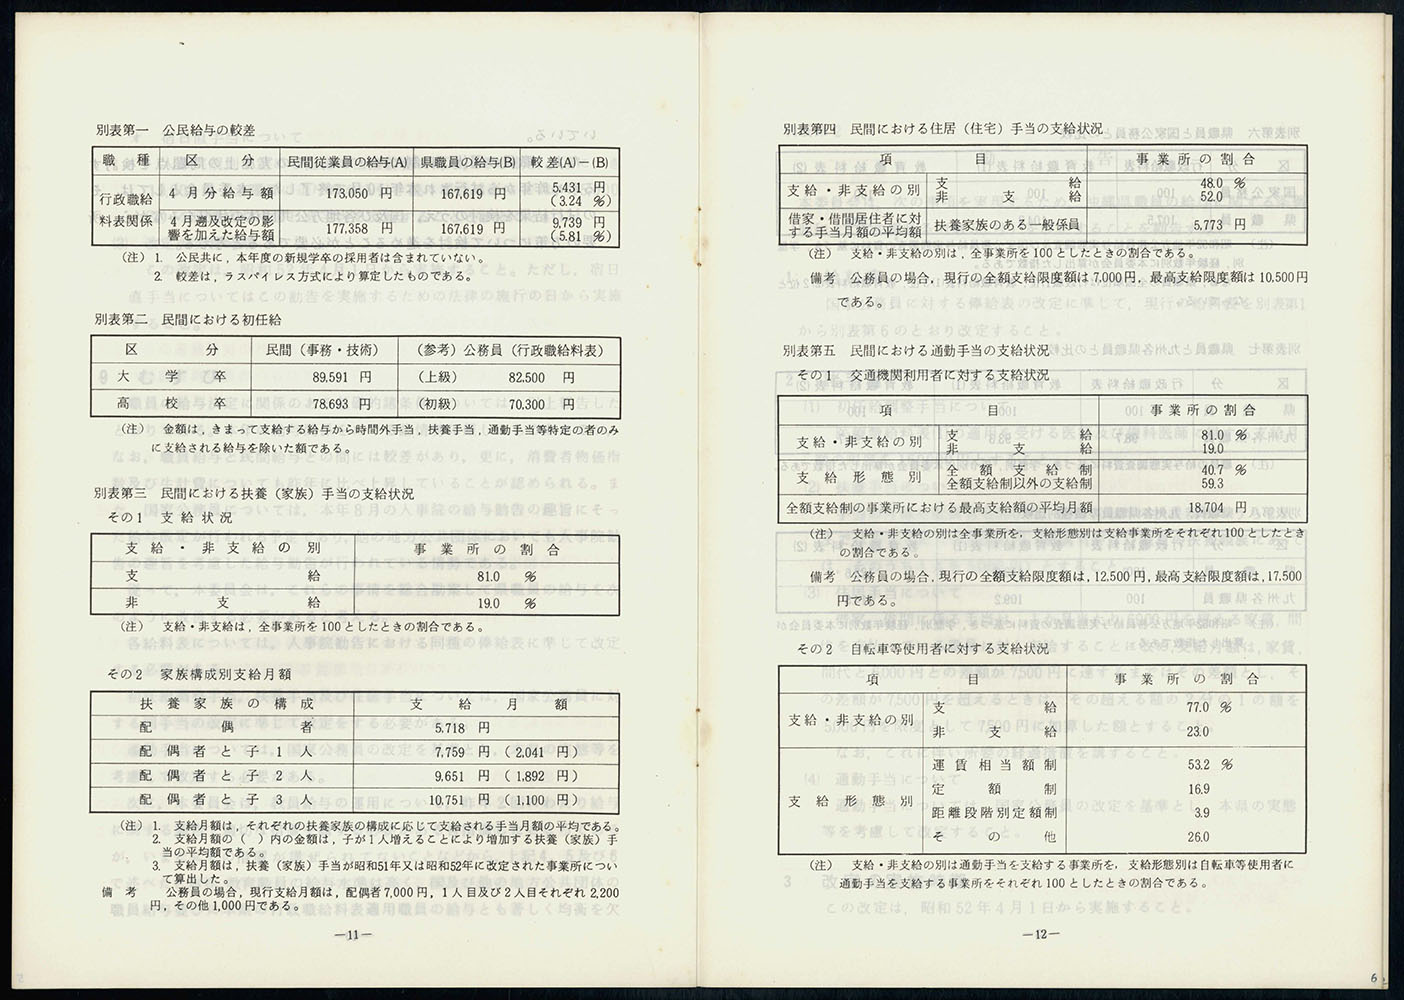 別表第一　公民給与の較差
職種　区分　民間従業員の給与(A)　県職員の給与(B)　較差(A)－(B)
行政職給料表関係　4月分給与額　173,050 円　167,619 円　5,431 円 (3.24 %)
4月遡及改定の影響を加えた給与額　177,358 円　167,619 円　9,739 円 (5.81 %)
(注) 1. 公民共に，本年度の新規学卒の採用者は含まれていない。
2. 較差は，ラスパイレス方式により算定したものである。
別表第二　民間における初任給
区分　民間（事務・技術）　（参考）公務員（行政職給料表）
大学卒　89,591 円　（上級）　82,500 円
高校卒　78,693 円　（初級）　70,300 円
(注) 金額は，きまって支給する給与から時間外手当，扶養手当，通勤手当等特定の者のみ
に支給される給与を除いた額である。
別表第三　民間における扶養（家族）手当の支給状況
その1　支給状況
支給・非支給の別　事業所の割合
支給　81.0 %
非支給　19.0 %
(注) 支給・非支給は，全事業所を100としたときの割合である。
その2　家族構成別支給月額
扶養家族の構成　支給月額
配偶者　5,718 円
配偶者と子1人　7,759 円 (2,041 円)
配偶者と子2人　9,651 円 (1,892 円)
配偶者と子3人　10,751 円 (1,100 円)
(注) 1. 支給月額は，それぞれの扶養家族の構成に応じて支給される手当月額の平均である。
2. 支給月額の（　）内の金額は，子が1人増えることにより増加する扶養（家族）手
当の平均額である。
3. 支給月額は，扶養（家族）手当が昭和51年又は昭和52年に改定された事業所につい
て算出した。
備考　公務員の場合，現行支給月額は，配偶者7,000円，1人目及び2人目それぞれ2,200
円，その他1,000円である。
—11—
別表第四　民間における住居（住宅）手当の支給状況
項目　事業所の割合
支給・非支給の別　支給　48.0 %
非支給　52.0
借家・借間居住者に対する手当月額の平均額　扶養家族のある一般係員　5,773 円
(注) 支給・非支給の別は，全事業所を100としたときの割合である。
備考　公務員の場合，現行の全額支給限度額は7,000円，最高支給限度額は10,500円
である。
別表第五　民間における通勤手当の支給状況
その1　交通機関利用者に対する支給状況
項目　事業所の割合
支給・非支給の別　支給　81.0 %
非支給　19.0
支給形態別　全額支給制　40.7 %
全額支給制以外の支給制　59.3
全額支給制の事業所における最高支給額の平均月額　18,704 円
(注) 支給・非支給の別は全事業所を，支給形態別は支給事業所をそれぞれ100としたとき
の割合である。
備考　公務員の場合，現行の全額支給限度額は，12,500円，最高支給限度額は，17,500
円である。
その2　自転車等使用者に対する支給状況
項目　事業所の割合
支給・非支給の別　支給　77.0 %
非支給　23.0
支給形態別　運賃相当額制　53.2 %
定額制　16.9
距離段階別定額制　3.9
その他　26.0
(注) 支給・非支給の別は通勤手当を支給する事業所を，支給形態別は自転車等使用者に
通勤手当を支給する事業所をそれぞれ100としたときの割合である。
—12—
6